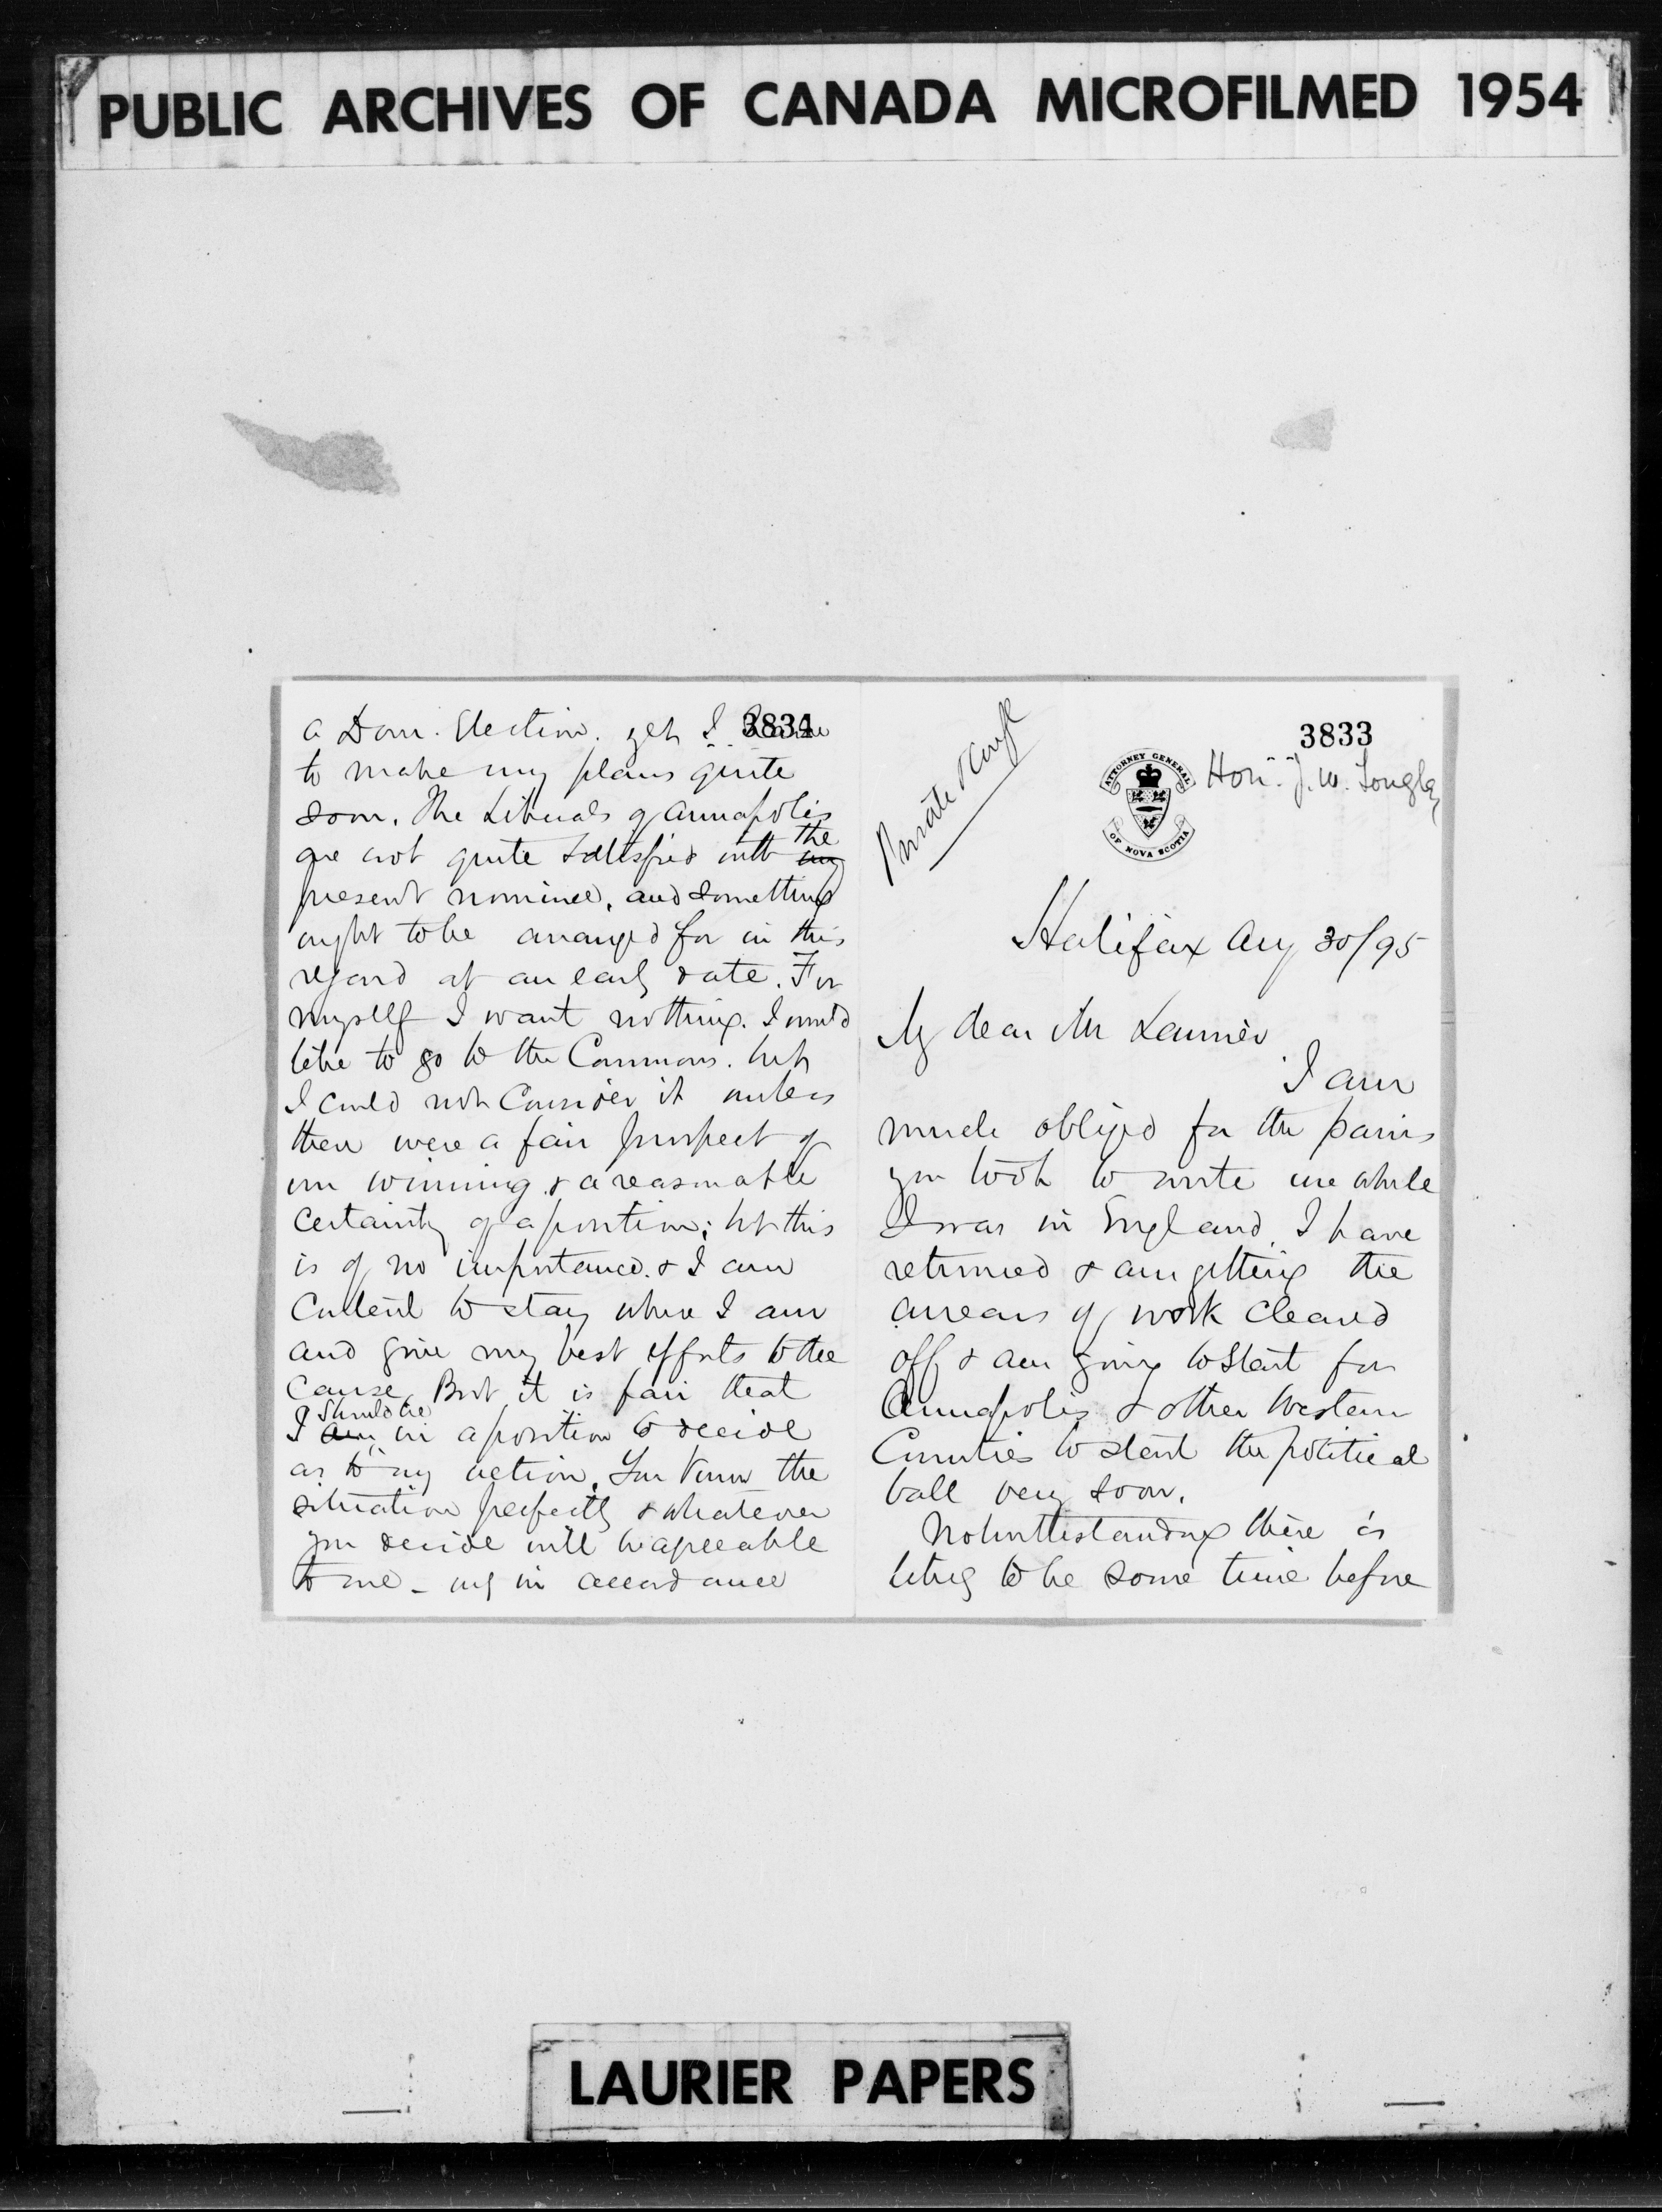 PUBLIC ARCHIVES OF CANADA MICROFILMED 1954
3833
Private & Conf
ATTORNEY GENERAL
OF NOVA SCOTIA
Hon. J. W. Longley
Halifax Aug 30/95
My dear Mr Laurier
I am
much obliged for the pains
you took to write me while
I was in England. I have
returned & am getting the
arrears of work cleared
off & am going to start for
Annapolis & other Western
Counties to start the political
ball very soon.
Notwithstanding there is
likely to be some time before
3834
a Dom. Election. yet I
to make my plans quite
soon. The Liberals of Annapolis
are not quite satisfied with the
present nominee, and something
ought to be arranged for in this
regard at an early date. For
myself I want nothing. I would
like to go to the Commons. but
I could not consider it unless
there were a fair prospect of
winning & a reasonable
certainty of a position; but this
is of no importance. & I am
content to stay where I am
and give my best efforts to the
cause. But it is fair that
I should be in a position to decide
as to my action. You know the
situation perfectly & whatever
you decide will be agreeable
to me - in accordance
LAURIER PAPERS